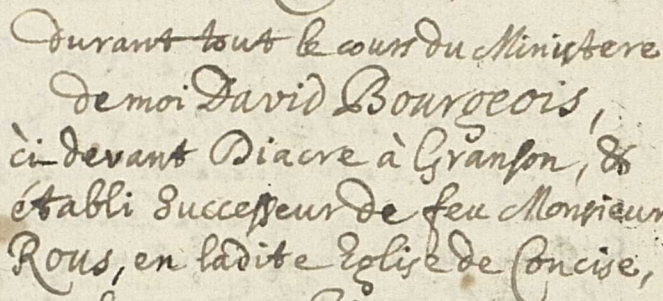 durant tout le cours du Ministere
de moi David Bourgeois,
ci-devant Diacre à Granson, &
établi Successeur de feu Monsieur
Rous, en ladite Eglise de Concise,